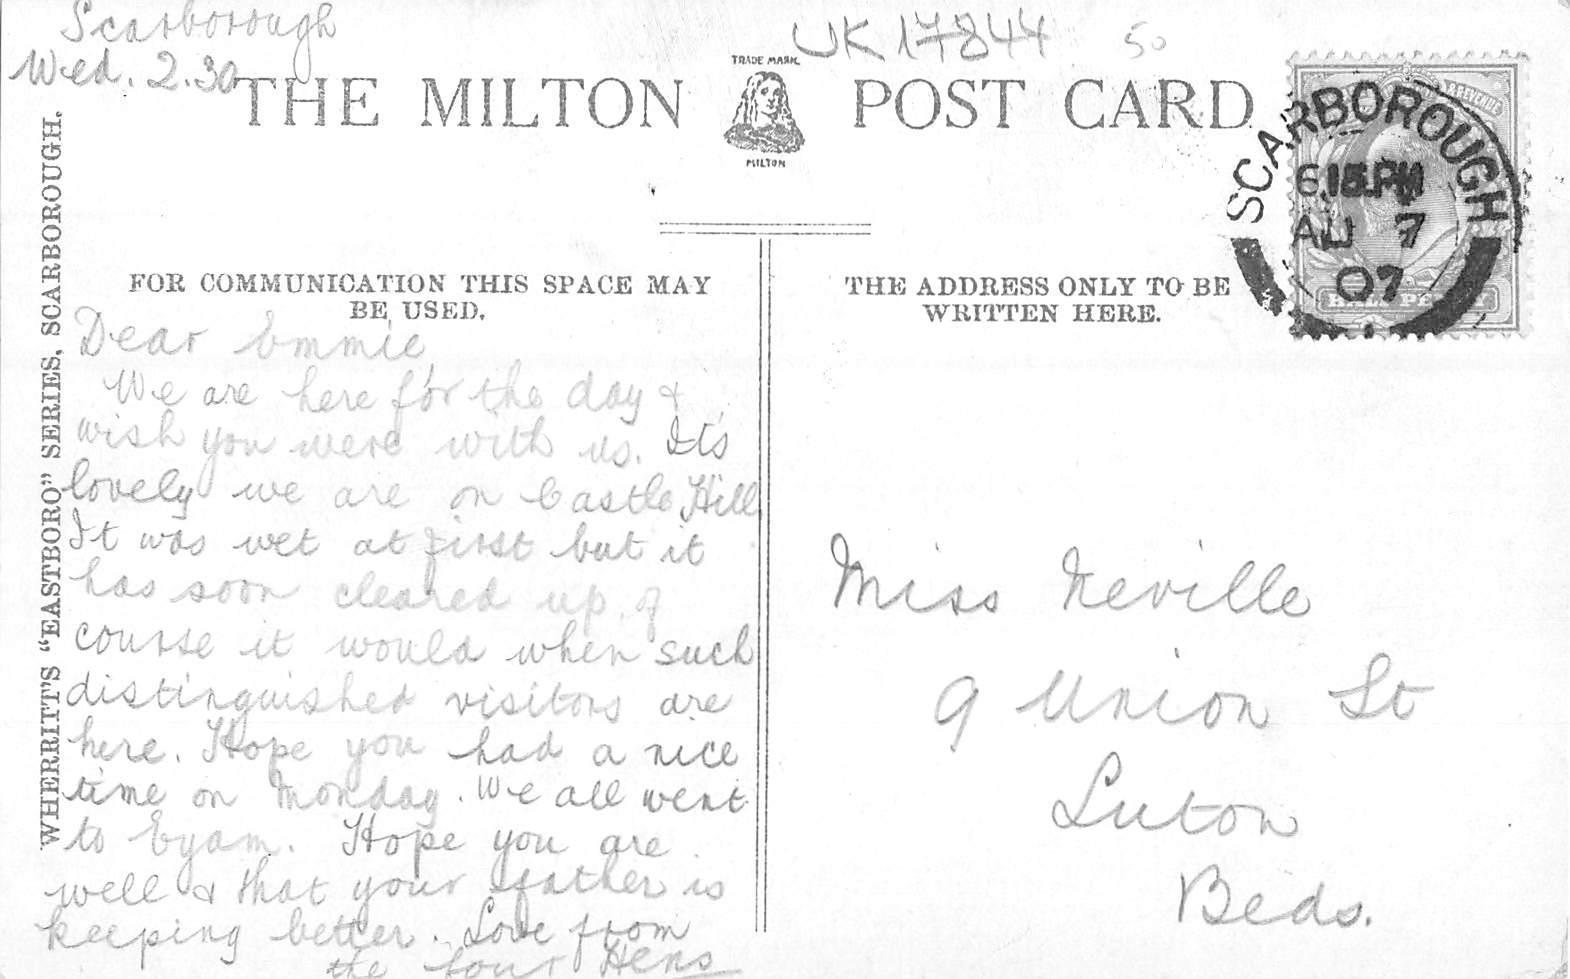 Scarborough
Wed. 2.30
UK17844 50
THE MILTON POST CARD
TRADE MARK.
MILTON
SCARBOROUGH
6 15 PM
AU 7
07
& REVENUE
HALF PENNY
WHERRITT'S "EASTBORO" SERIES, SCARBOROUGH.
FOR COMMUNICATION THIS SPACE MAY
BE USED.
Dear Emmie
We are here for the day &
wish you were with us. Its
lovely we are on Castle Hill
It was wet at first but it
has soon cleared up, of
course it would when such
distinguished visitors are
here. Hope you had a nice
time on Monday. We all went
to Eyam. Hope you are
well & that your father is
keeping better. Love from
the four Hens
THE ADDRESS ONLY TO BE
WRITTEN HERE.
Miss Neville
9 Union St
Luton
Beds.